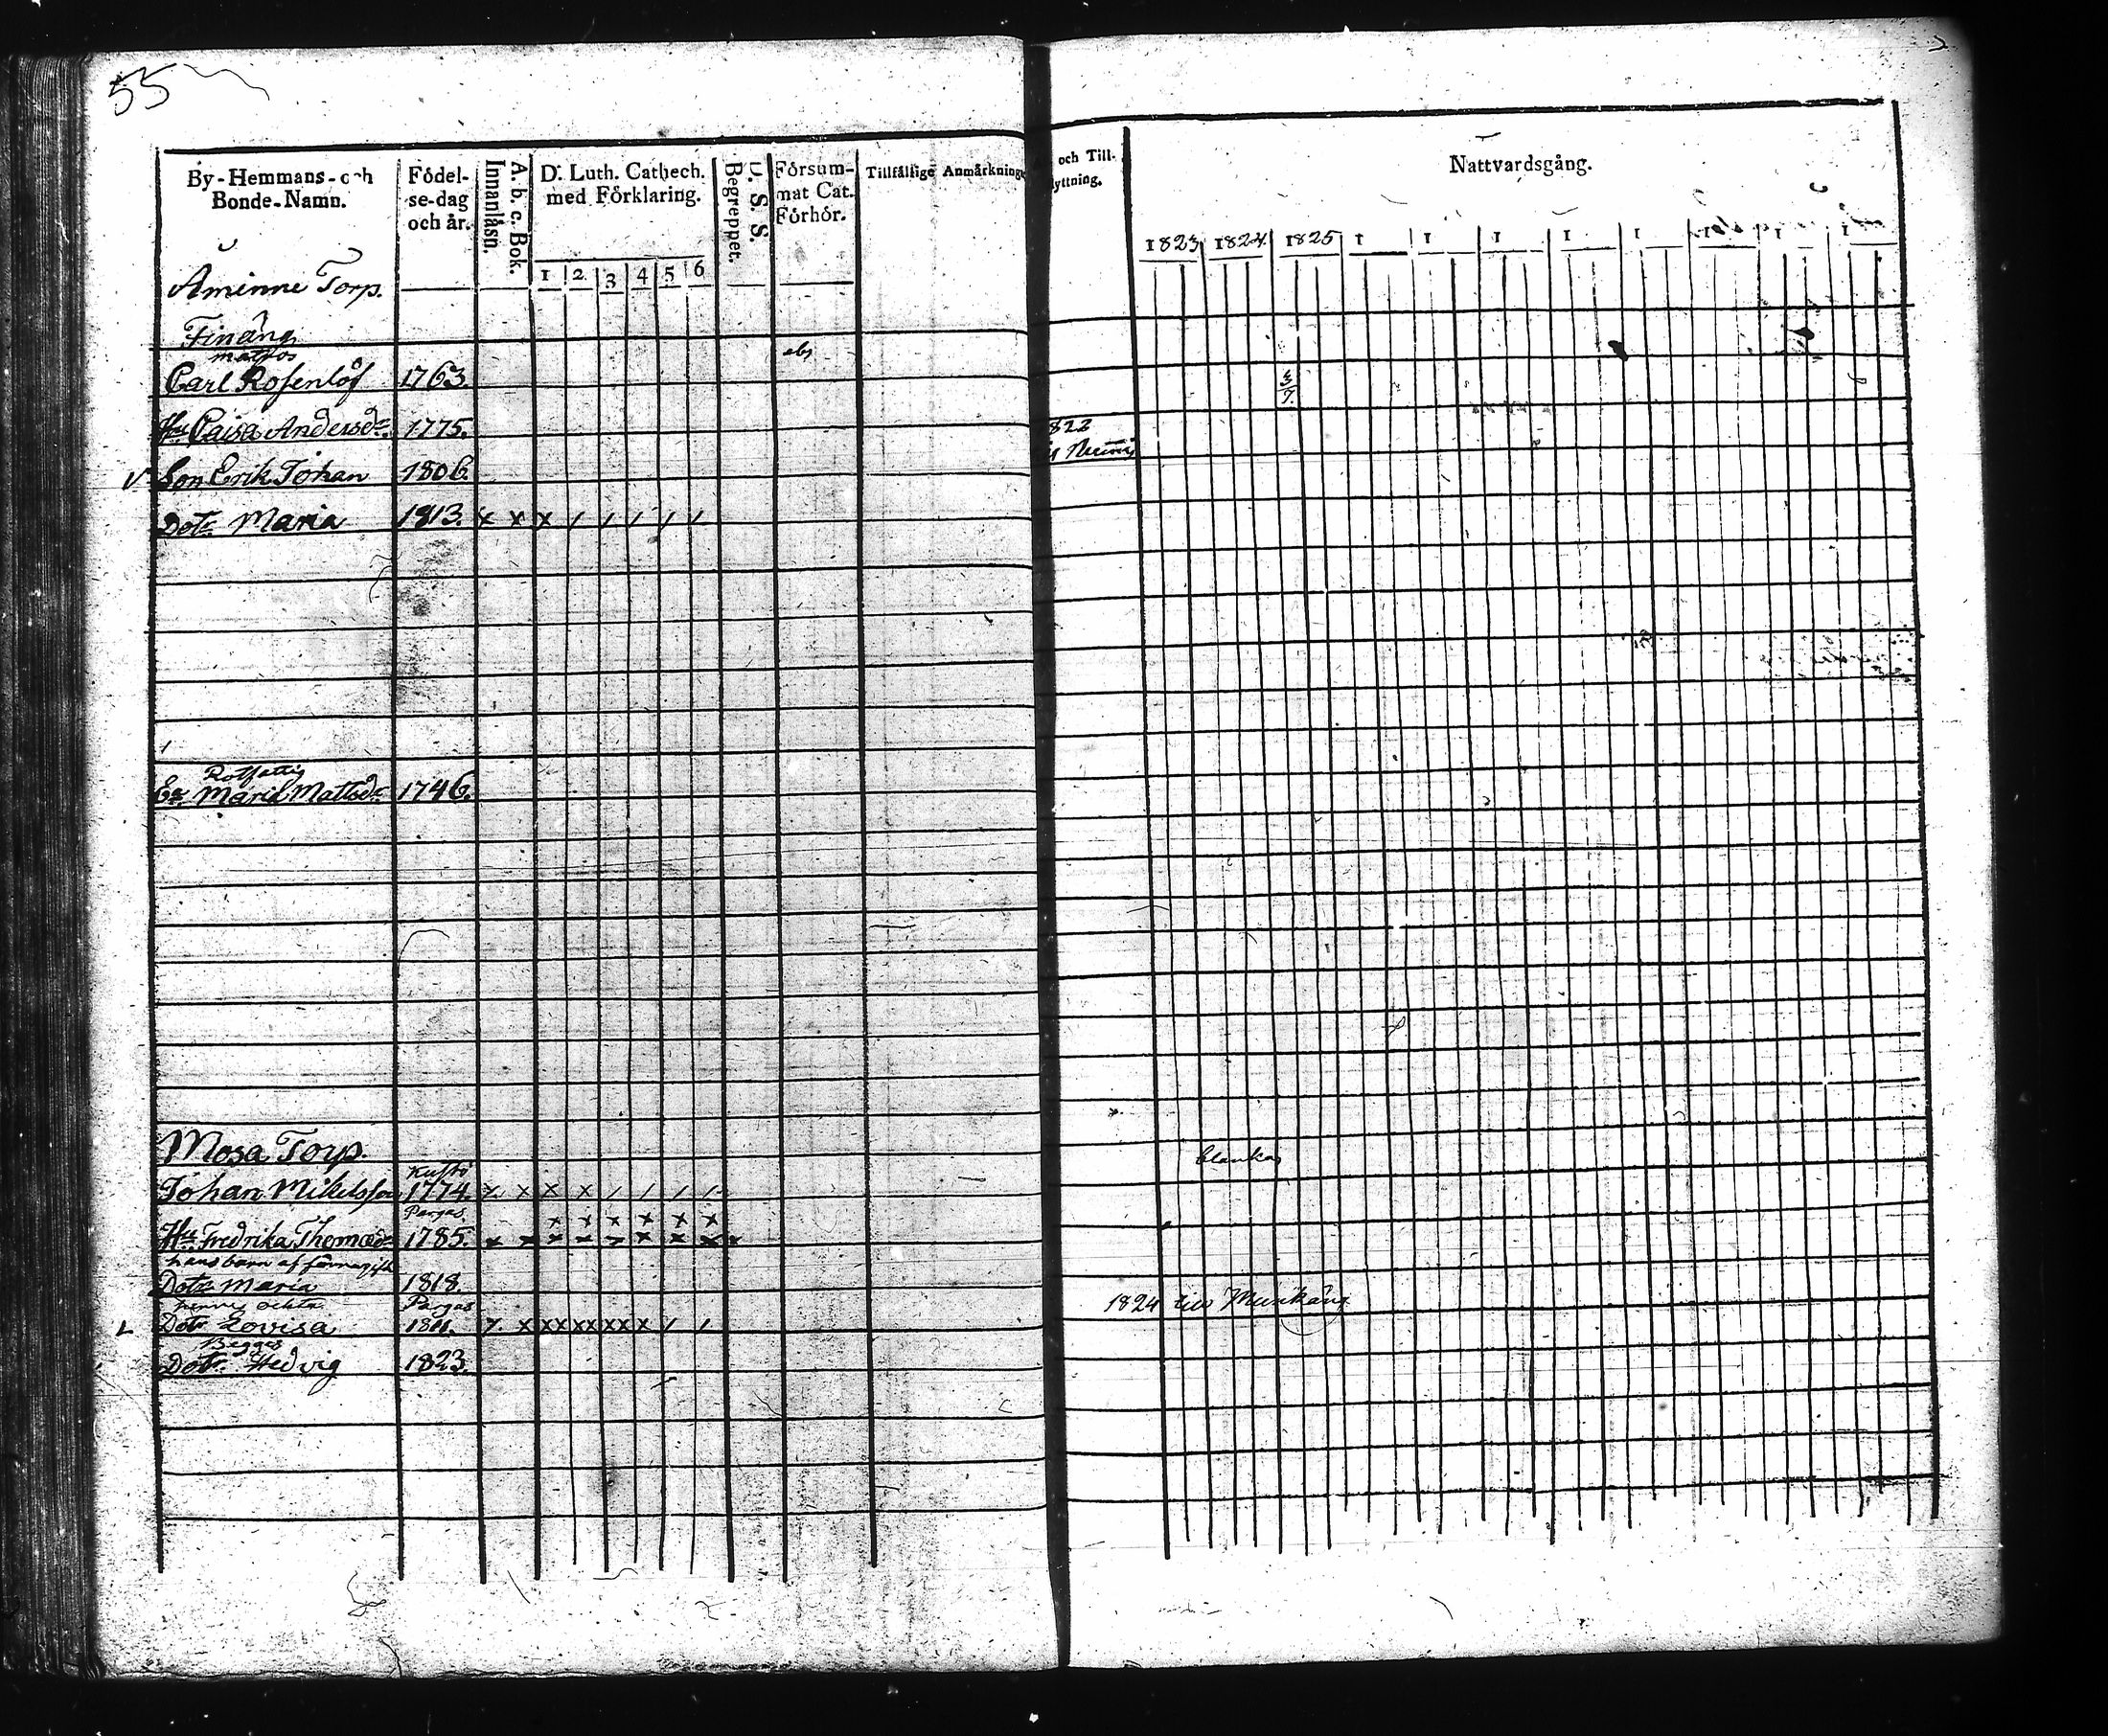 55
By-Hemmans-och Bonde-Namn.
Födel-se-dag och år.
A. b. c. Bok. Innanläsn.
D. Luth. Cathech. med Förklaring.
1 2 3 4 5 6
D. S. S. Begreppet.
Försum-mat Cat. Förhör.
Tillfällige Anmärkninge
och Till-
lyttning.
Nattvardsgång.
1823 1824 1825 1 1 1 1 1 1 1 1
Åminne Torp.
Finäng
matros abs
Carl Rosenlöf 1763. 3/7
Hu Caisa Andersdr. 1775.
822
V Son Erik Johan 1806.
Dotr Maria 1813. x x x / / / / /
Rotfattig
Maria Mattsdr 1746.
Mosa Torp.
Kustö
Johan Mikelsson 1774. x x x x / / / /
Pargas x x x x x x
Hu Fredrika Thomædr 1785. x x x x x x x x x
hans barn af förra gift
Dotr Maria 1818.
hennes oekta Pargas 1824 till
L Dotr Lovisa 1811. x x xx xx xx x / /
Begges
Dotr Hedvig 1823.